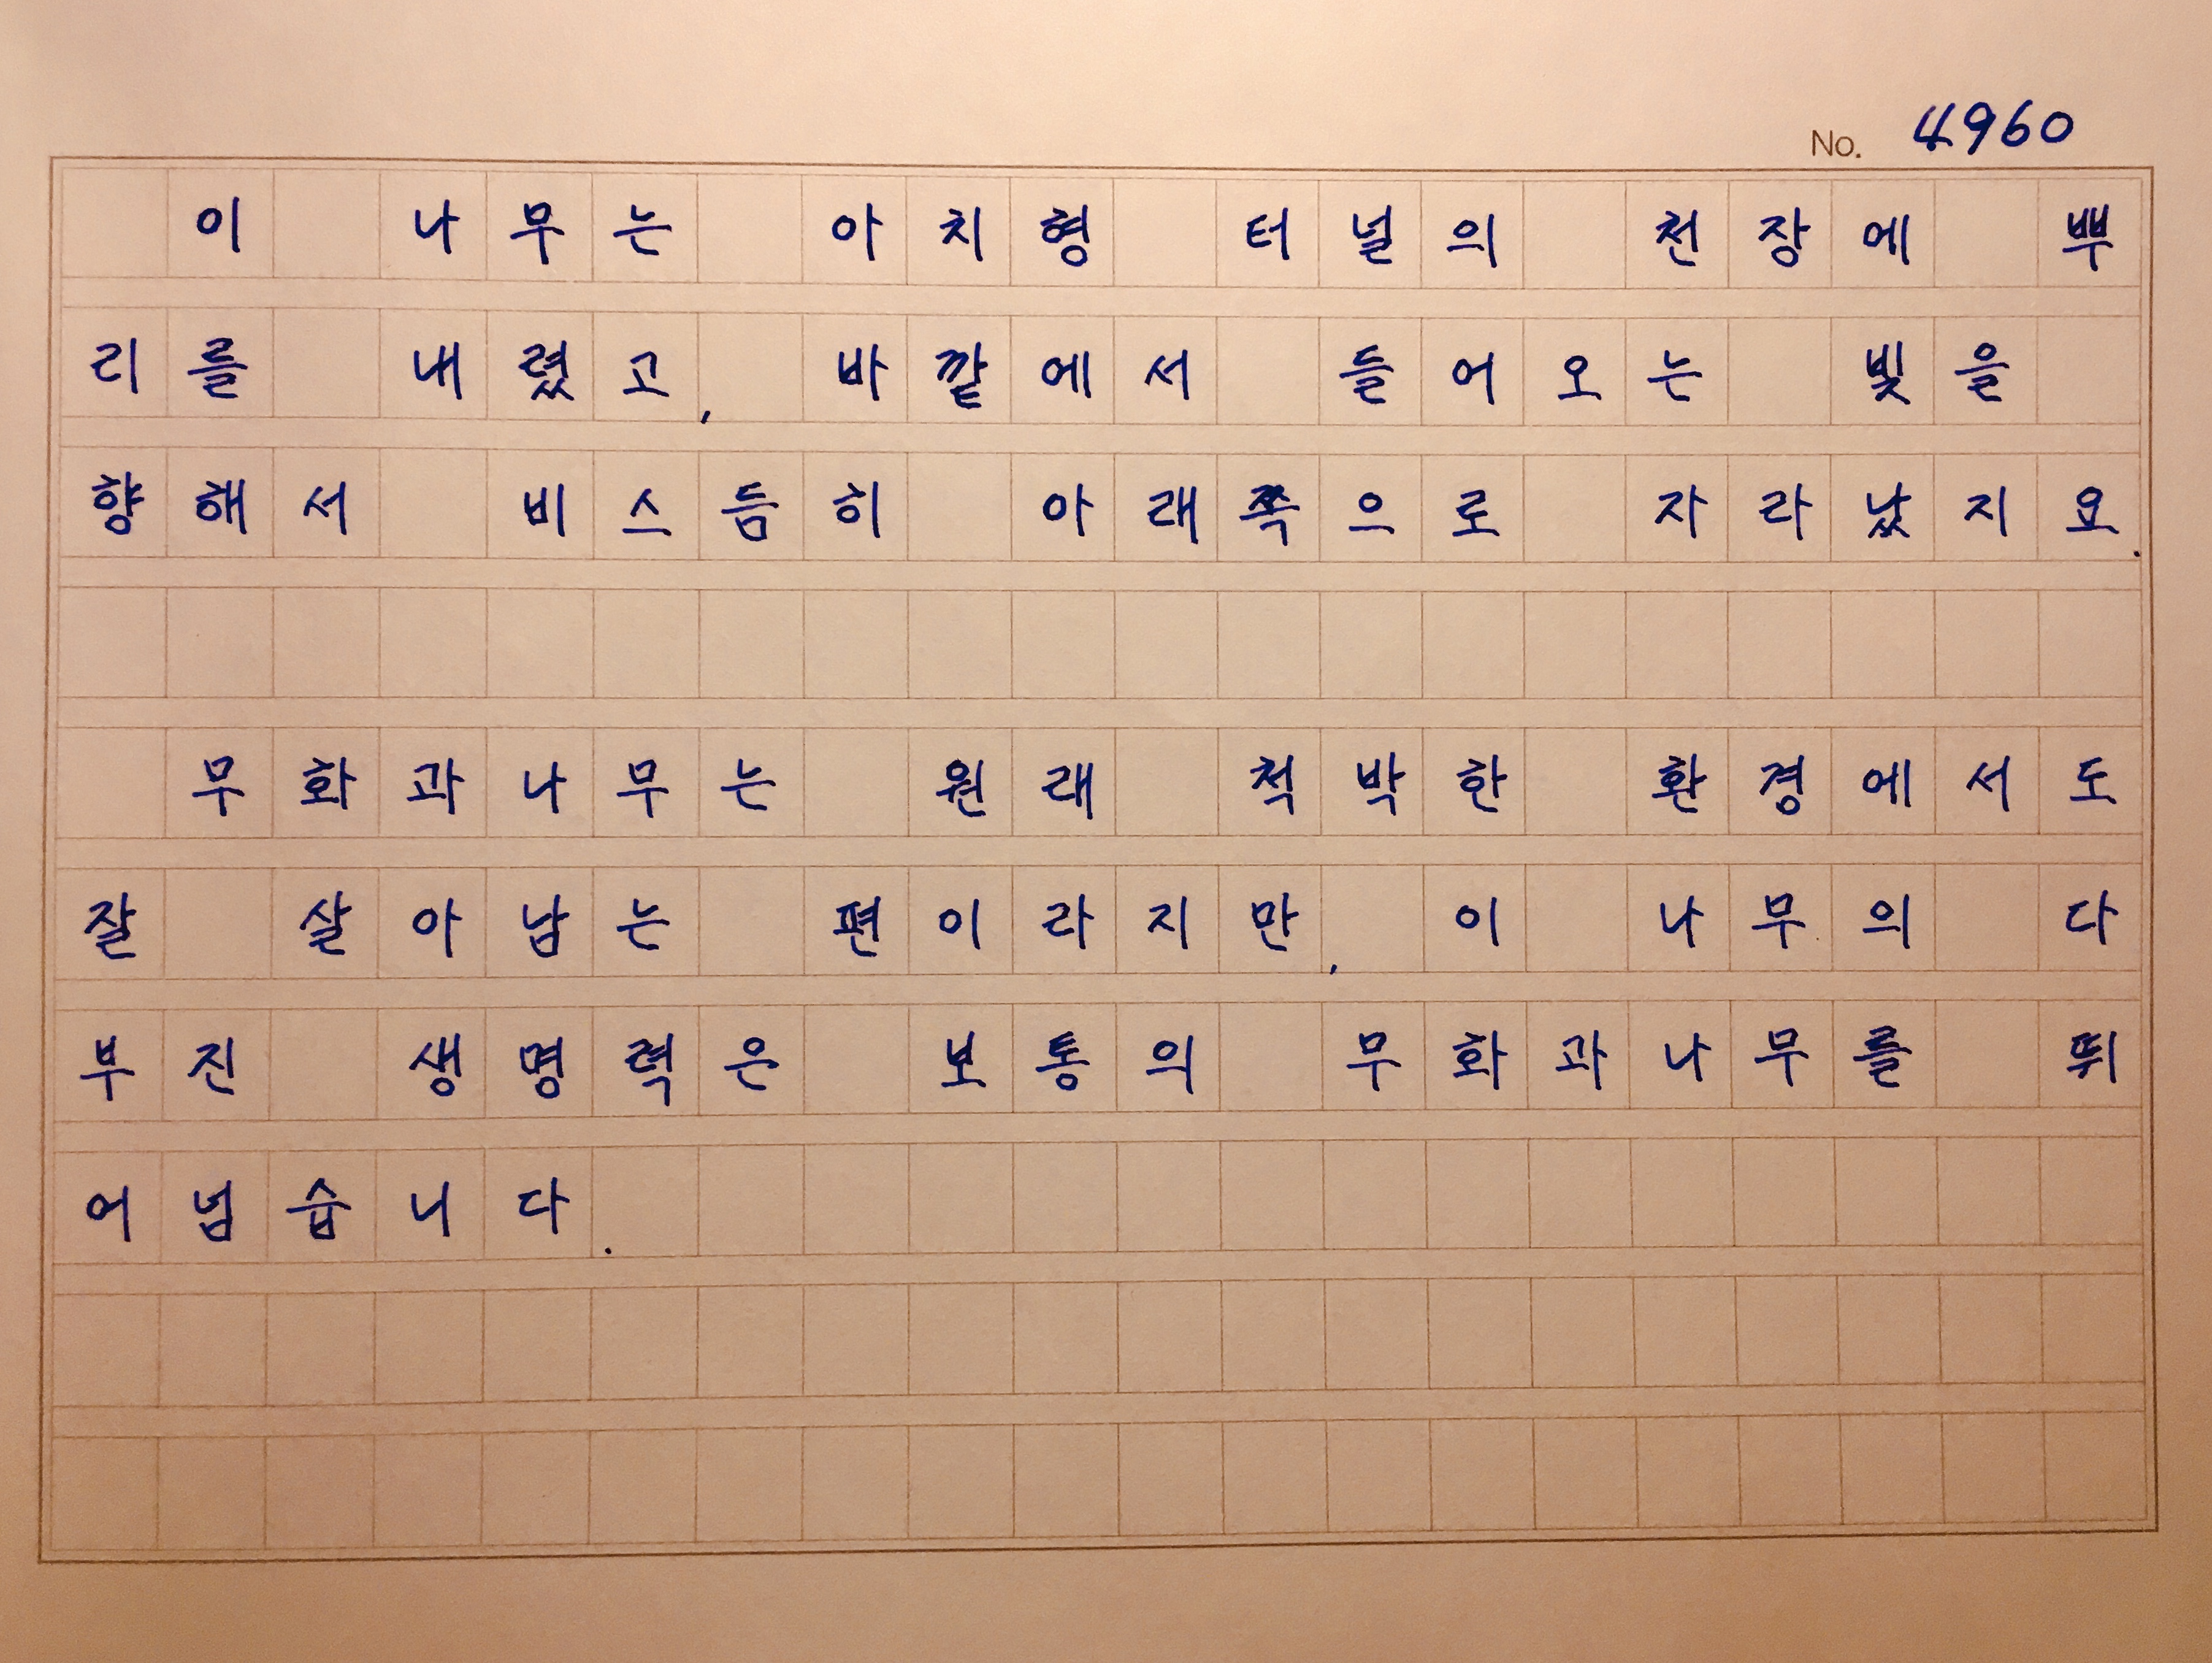 No. 4960
이 나무는 아치형 터널의 천장에 뿌
리를 내렸고, 바깥에서 들어오는 빛을
향해서 비스듬히 아래쪽으로 자라났지요.
무화과나무는 원래 척박한 환경에서도
잘 살아남는 편이라지만, 이 나무의 다
부진 생명력은 보통의 무화과나무를 뛰
어넘습니다.